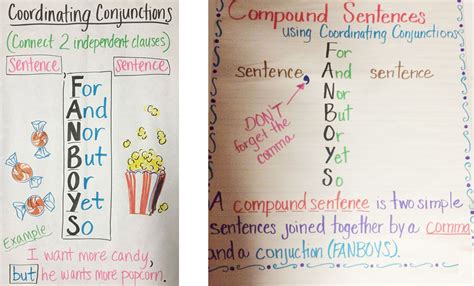 Coordinating Conjunctions
(Connect 2 independent clauses)
Sentence, sentence.
For
And
Nor
But
Or
Yet
So
FANBOYS
Example
I want more candy,
but he wants more popcorn.
Compound Sentences
using Coordinating Conjunctions
For
And
sentence, Nor sentence
But
Or
Yet
So
DON'T
forget the
comma
A compound sentence is two simple
sentences joined together by a comma
and a conjuction (FANBOYS).